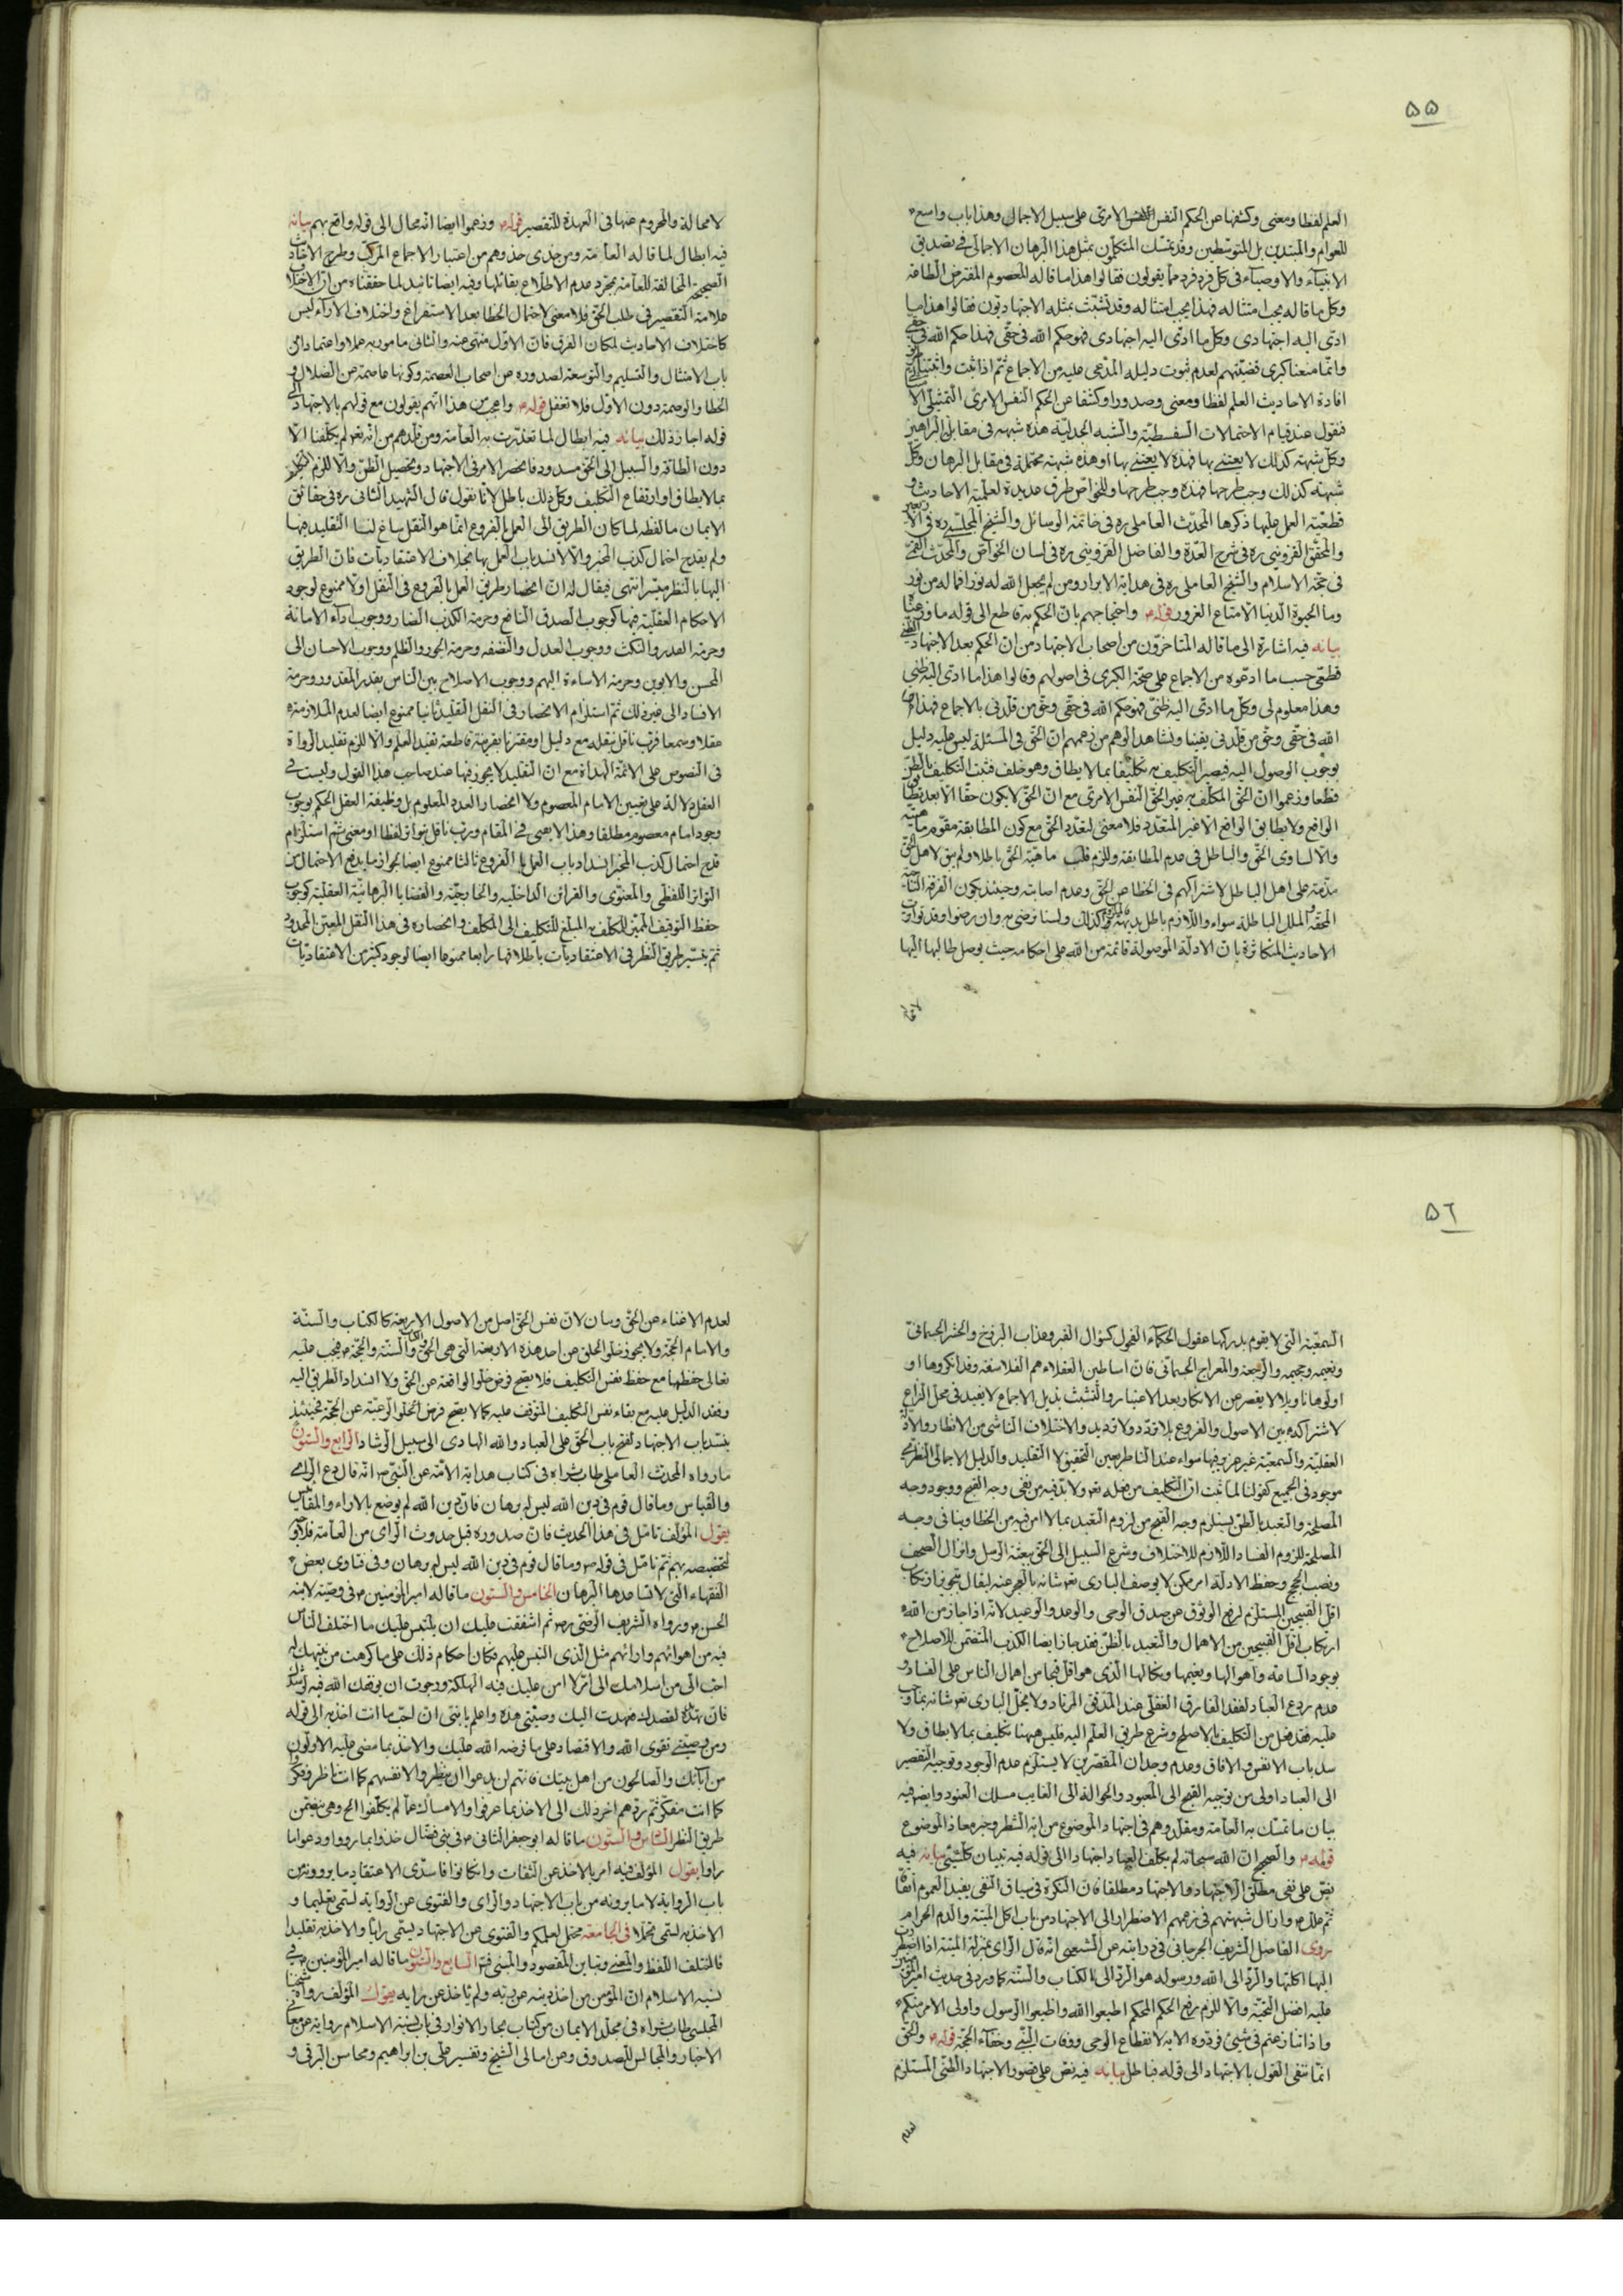 ۵۵
العلم لفظا ومعنى وكشفها عن الحكم النفس الامرى على سبيل الاجمال وهذا باب واسع
للعوام والمبتدين بل للمتوسطين وقد تمسك المتكلمون بمثل هذا البرهان الاجمالى فى تصديق
الانبياء والاوصياء فى كل فرد فرد مما يقولون فقالوا هذا ما قاله المعصوم المفترض الطاعة
وكل ما قاله يجب امتثاله فهذا يجب امتثاله وقد تشبث بمثله الاجتهاديون فقالوا هذا ما
ادى اليه اجتهادى وكل ما ادى اليه اجتهادى فهو حكم الله فى حقى فهذا حكم الله فى حقى
وانما منعنا كبرى قضيتهم لعدم ثبوت دليله المدعى عليه من الاجماع ثم اذا ثبت واثبتنا
افادة الاحاديث العلم لفظا ومعنى وصدورا وكشفا عن الحكم النفس الامرى
فنقول عند قيام الاحتمالات السفسطية والشبه الجدلية هذه شبهة فى مقابل البراهين
وكل شبهة كذلك لا يعتنى بها فهذه لا يعتنى بها او هذه شبهة محتملة فى مقابل البرهان وكل
شبهة كذلك وجب طرحها فهذه وجب طرحها وللخواص طرق عديدة لعلمية الاحاديث و
قطعية العمل عليها ذكرها المحدث العاملى ره فى خاتمة الوسائل والشيخ المجلسى ره فى
والمحقق القزوينى ره فى شرح العدة والفاضل القزوينى ره فى لسان الخواص والمحدث
فى حجة الاسلام والشيخ العاملى ره فى هداية الابرار ومن لم يجعل الله له نورا فما له من نور
وما الحيوة الدنيا الا متاع الغرور قوله واحتجاجهم بان الحكم به قاطع الى قوله
بيانه فيه اشارة الى ما قاله المتاخرون من اصحاب الاجتهاد من ان الحكم بعد الاجتهاد
قطعى حسب ما ادعوه من الاجماع على صحة الكبرى فى اصولهم وقالوا هذا ما ادى اليه ظنى
وهذا معلوم لى وكل ما ادى اليه ظنى فهو حكم الله فى حقى وحق من قلدنى بالاجماع فهذا
الله فى حقى وحق من قلدنى يقينا ونشا هذا الوهم من زعمهم ان الحق فى المسئلة ليس عليه دليل
يوجب الوصول اليه فيصير التكليف به تكليفا بما لا يطاق وهو خلف فثبت التكليف بالظن
قطعا وزعموا ان الحق المكلف به غير الحق النفس الامرى مع ان الحق لا يكون حقا الا بعد
الواقع ولا يطابق الواقع الا غير المتعدد فلا معنى لتعدد الحق مع كون المطابقة مقوم
والا لساوى الحق والباطل فى عدم المطابقة وللزم قلب ماهية الحق باطلا ولم يبق لاهل الحق
مزية على اهل الباطل لاشتراكهم فى الخطا عن الحق وعدم اصابته وحينئذ يكون الفرقة
المحقة والملل الباطلة سواء واللازم باطل بديهة كذلك ولسنا نرضى به وان رضوا وقد تواترت
الاحاديث المتكاثرة بان الادلة الموصولة قائمة من الله على احكامه حيث يوصل طالبها اليها
لا محالة والمحروم عنها فى العهدة للتقصير قوله وزعموا ايضا انه محال الى قوله واقع بهم بيانه
فيه ابطال لما قاله العامة ومن حذى حذوهم من اعتبار الاجماع المركب وطرح
الصحيحة المخالفة للعامة بمجرد عدم الاطلاع بقائلها وفيه ايضا تائيد لما حققناه من ان
علامة التقصير فى طلب الحق فلا معنى لاحتمال الخطا بعد الاستفراغ واختلاف الاراء ليس
كاختلاف الاحاديث لمكان الفرق فان الاول منهى عنه والثانى مامور به عملا واعتمادا من
باب الامتثال والتسليم والتوسعة لصدوره عن اصحاب العصمة وكونها عاصمة عن الضلال و
الخطا والوصمة دون الاول فلا تغفل قوله واعجب من هذا انهم يقولون مع قولهم بالاجتهاد الى
قوله اجاز ذلك بيانه فيه ابطال لما تعذرت به العامة ومن قلدهم من انه تعالى لم يكلفنا الا
دون الطاقة والسبيل الى الحق مسدود فانحصر الامر فى الاجتهاد وتحصيل الظن والا للزم
بما لا يطاق او ارتفاع التكليف وكل ذلك باطل لانا نقول قال الشهيد الثانى ره فى حقائق
الايمان ما لفظه لما كان الطريق الى العمل بالفروع انما هو النقل ساغ لنا التقليد فيها
ولم يقدح احتمال كذب المخبر والا لانسد باب العمل بها بخلاف الاعتقاديات فان الطريق
اليها بالنظر ميسر انتهى فيقال له ان انحصار طريق العمل بالفروع فى النقل اولا ممنوع لوجود
الاحكام العقلية فيها كوجوب الصدق النافع وحرمة الكذب الضار ووجوب اداء الامانة
وحرمة الغدر والنكث ووجوب العدل والنصفة وحرمة الجور والظلم ووجوب الاحسان الى
المحسن والابوين وحرمة الاساءة اليهم ووجوب الاصلاح بين الناس بقدر المقدور وحرمة
الافساد الى غير ذلك ثم استلزام الانحصار فى النقل التقليد ثانيا ممنوع ايضا لعدم الملازمة
عقلا وسمعا فرب ناقل ينقله مع دليل او مقترنا بقرينة قاطعة تفيد العلم والا للزم تقليد الرواة
فى النصوص على الائمة الهداة مع ان التقليد لا يجوز فيها عند صاحب هذا القول وليست فى
العقل دلالة على تعيين الامام المعصوم ولا انحصار العدد المعلوم بل وظيفة العقل الحكم بوجوب
وجود امام معصوم مطلقا وهذا لا يعصى فى المقام ورب ناقل تواتر لفظا او معنى ثم استلزام
قدح احتمال كذب المخبر انسداد باب العمل الفروع ثالثا ممنوع ايضا لجواز ما يدفع الاحتمال من
التواتر اللفظى والمعنوى والقرائن الداخلية والخارجية والقضايا البرهانية العقلية كوجوب
حفظ التوقيف المبين المكلف به المبلغ للتكليف الى المكلف وانحصاره فى هذا النقل المعين
ثم تيسير طريق النظر فى الاعتقاديات باطلاقها رابعا ممنوع ايضا لوجود كثير من الاعتقاديات
۵٦
السمعية التى لا يقوم بدركها عقول الحكماء الفحول كسؤال القبر وعذاب البرزخ والحشر الجسمانى
ونعيمه وجحيمه والرجعة والمعراج الجسمانى فان اساطين العقلاء هم الفلاسفة وقد انكروها او
اولوها تاويلا لا يقصر عن الانكار وبعد الاعتبار والتشبث بذيل الاجماع لا يفيد فى محل النزاع
لاشتراكه بين الاصول والفروع بلا تردد ولا ترديد والاختلاف الناشى من الانظار
العقلية والسمعية غير عزيز وفيها سواء عند الناظر بعين التحقيق لا التقليد والدليل الاجمالى
موجود فى الجميع كقولنا لما ثبت ان التكليف من فعله تعالى ولا بد فيه من نفى وجه القبح ووجود وجه
المصلحة والتعبد بالظن يستلزم وجه القبح من لزوم التعبد بما لا امن فيه من الخطا وينافى وجه
المصلحة للزوم الفساد اللازم للاختلاف وشرع السبيل الى الحق ببعثة الرسل وانزال الصحف
ونصب الحجج وحفظ الادلة امر ممكن لا يوصف البارى تعالى شانه بالعجز عنه ليقال بتجويز ارتكاب
اقل القبيحين المستلزم لرفع الوثوق عن صدق الوحى والوعد والوعيد لانه اذا جاز من الله
ارتكاب اقل القبيحين من الاهمال والتعبد بالظن فقد جاز ايضا الكذب المتضمن للاصلاح
بوجود الساعة واهوالها ونعيمها ونكالها الذى هو اقل قبحا من اهمال الناس على الفساد و
عدم ردع العباد لفقد الفارق العقلى عند المدقق المرتاد ولا يخل البارى تعالى شانه بما
عليه فقد فعل من التكليف بالاصلح وشرع طريق العلم اليه فليس هيهنا تكليف بما لا يطاق ولا
سد باب الانفس والافاق وعدم وجدان المقصرين لا يستلزم عدم الوجود وتوجيه التقصير
الى العباد اولى من توجيه القبح الى المعبود والحوالة الى الغايب مسلك العنود وايضا فيه
بيان ما تمسك به العامة ومقلدوهم فى اجتهاد الموضوع من اية الشطر وغيرها
قوله والصحيح ان الله سبحانه لم يكلف العباد اجتهادا الى قوله فيه تبيان كل شئ بيانه فيه
نص على نفى مطلق الاجتهاد والاجتهاد مطلقا فان النكرة فى سياق النفى يفيد العموم
ثم وازال شبهتهم فى زعمهم الاضطرار الى الاجتهاد من باب اكل الميتة والدم الحرام
روى الفاضل الشريف الجرجانى فى درايته عن الشعبى انه قال الراى بمنزلة الميتة اذا اضطر
اليها اكلتها والرد الى الله ورسوله هو الرد الى الكتاب والسنة كما ورد فى حديث امير
عليه افضل التحية والا للزم رفع الحكم المحكم اطيعوا الله واطيعوا الرسول واولى الامر منكم
واذا تنازعتم فى شئ فردوه الاية لانقطاع الوحى ووفات النبى وخفاء الحجة قوله والحق
انما ننفى القول بالاجتهاد الى قوله فباطل بيانه فيه نص على قصور الاجتهاد الظنى المستلزم
لعدم
لعدم الاغناء عن الحق وبيان لان نفس الحق اصل من الاصول الاربعة كالكتاب والسنة
والامام الحجة ولا يجوز خلو الخلق عن احد هذه الاربعة التى هى الحق والسنة والحجة فيجب عليه
تعالى حفظها مع حفظ نفس التكليف فلا يصح فرض خلو الواقعة عن الحق ولا انسداد الطريق اليه
وفقد الدليل عليه مع بقاء نفس التكليف المتوقف عليه كما لا يصح فرض خلو الرعية عن الحجة فحينئذ
ينسد باب الاجتهاد لفتح باب الحق على العباد والله الهادى الى سبيل الرشاد الرابع والستون
ما رواه المحدث العاملى طاب ثراه فى كتاب هداية الامة عن النبى ص انه قال دع الراى
والقياس وما قال قوم فى دين الله ليس له برهان فان دين الله لم يوضع بالاراء والمقاييس
يقول المؤلف تامل فى هذا الحديث فان صدوره قبل حدوث الراى من العامة فلا وجه
لتخصيصه بهم ثم تامل فى قوله ص وما قال قوم فى دين الله ليس له برهان وفى فتاوى بعض
الفقهاء التى لا تساعدها البرهان الخامس والستون ما قاله امير المؤمنين فى وصيته لابنه
الحسن ورواه الشريف الرضى ره ثم اشفقت عليك ان يلتبس عليك ما اختلف الناس
فيه من اهوائهم وارائهم مثل الذى التبس عليهم فكان احكام ذلك على ما كرهت من تنبيهك له
احب الى من اسلامك الى امر لا امن عليك فيه الهلكة ورجوت ان يوفقك الله فيه لرشدك
فان يهديك لقصدك فعهدت اليك وصيتى هذه واعلم يا بنى ان احب ما انت اخذ به الى قوله
ومن وصيتى تقوى الله والاقتصاد على ما فرضه الله عليك والاخذ بما مضى عليه الاولون
من ابائك والصالحون من اهل بيتك فانهم لن يدعوا ان ينظروا لانفسهم كما انت ناظر وفكروا
كما انت مفكر ثم ردهم اخر ذلك الى الاخذ بما عرفوا والامساك عما لم يكلفوا الخ وهى تتضمن
طريق النظر السادس والستون ما قاله ابو جعفر الثانى فى بنى فضال خذوا بما رووا ودعوا ما
راوا يقول المؤلف فيه امر بالاخذ عن الثقات وان كانوا فاسدى الاعتقاد ما يروونه من
باب الرواية لا ما يرونه من باب الاجتهاد والراى والفتوى عن الرواية لتسمى تعليما و
الاخذ به لتسمى تحملا فى الجامعة محتمل لعلمكم والفتوى عن الاجتهاد يسمى رايا والاخذ به تقليدا
فاختلف اللفظ والمعنى وتباين المقصود والمبنى السابع والستون ما قاله امير المؤمنين فى
نسبة الاسلام ان المؤمن من اخذ دينه عن ربه ولم ياخذ عن رايه يقول المؤلف رواه شيخنا
المجلسى طاب ثراه فى مجلد الايمان من كتاب بحار الانوار فى باب نسبة الاسلام رواية عن معانى
الاخبار والمجالس للصدوق وعن امالى الشيخ وتفسير على بن ابراهيم ومحاسن البرقى و